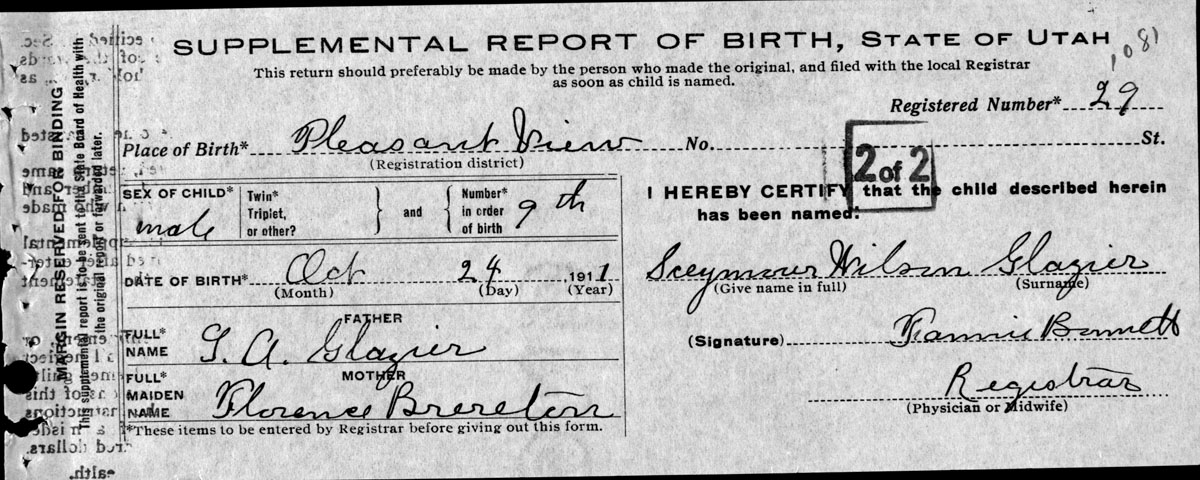 SUPPLEMENTAL REPORT OF BIRTH, STATE OF UTAH
1081
This return should preferably be made by the person who made the original, and filed with the local Registrar
as soon as child is named.
Registered Number* 29
Place of Birth* Pleasant View No. St.
(Registration district)
2 of 2
SEX OF CHILD* male
Twin* Triplet, or other? } and { Number* in order of birth 9th
I HEREBY CERTIFY that the child described herein
has been named:
DATE OF BIRTH* Oct 24 1911
(Month) (Day) (Year)
Sceymour Wilson Glazier
(Give name in full) (Surname)
FATHER
FULL* NAME S. A. Glazier
(Signature) Fannie Bennett
MOTHER
FULL* MAIDEN NAME Florence Brereton
Registrar
(Physician or Midwife)
*These items to be entered by Registrar before giving out this form.
MARGIN RESERVED FOR BINDING
This supplemental report is to be sent to the State Board of Health with
the original report or forwarded later.